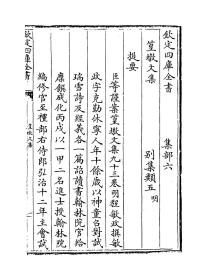 欽定四庫全書
篁墩文集
欽定四庫全書　集部六
篁墩文集　別集類五明
提要
臣等謹案篁墩文集九十三卷明程敏政撰敏
政字克勤休寧人年十餘歲以神童召對試
瑞雪詩及經義各一篇詔讀書翰林院官給
廩饌成化丙戌以一甲二名進士授翰林院
編修官至禮部右侍郎弘治十二年主會試